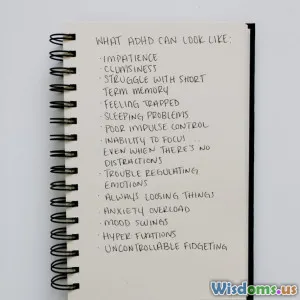 WHAT ADHD CAN LOOK LIKE:
· IMPATIENCE
· CLUMSINESS
· STRUGGLE WITH SHORT
TERM MEMORY
· FEELING TRAPPED
· SLEEPING PROBLEMS
· POOR IMPULSE CONTROL
· INABILITY TO FOCUS
EVEN WHEN THERE'S NO
DISTRACTIONS
· TROUBLE REGULATING
EMOTIONS
· ALWAYS LOOSING THINGS
· ANXIETY OVERLOAD
· MOOD SWINGS
· HYPER FIXATIONS
· UNCONTROLLABLE FIDGETING
Wisdoms.us